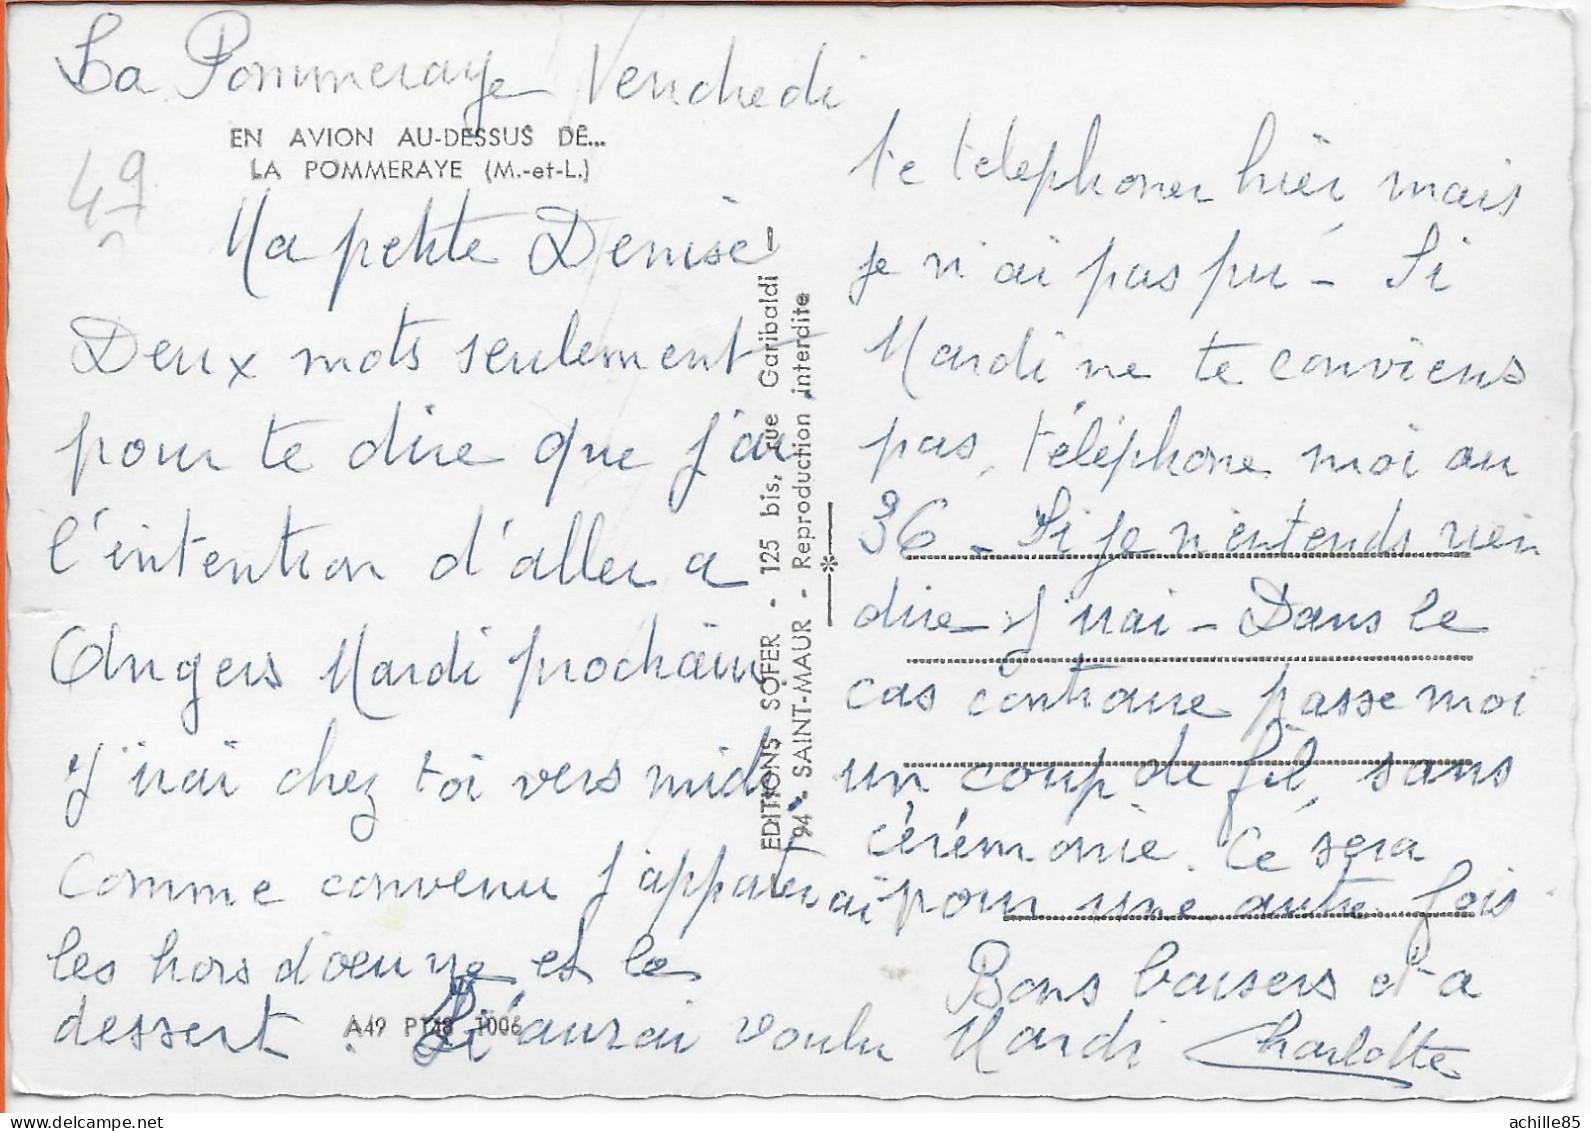 La Pommeraye Vendredi
EN AVION AU-DESSUS DE...
LA POMMERAYE (M.-et-L.)
49
Ma petite Denise -
Deux mots seulement
pour te dire que j'ai
l'intention d'aller a
Angers Mardi prochain
J'irai chez toi vers midi,
comme convenu j'apporterai
les hors d'oeuvre et le
dessert. J'aurai voulu
A49 P148 1006
EDITIONS SOFER - 125 bis, rue Garibaldi
94 - SAINT-MAUR - Reproduction interdite
te telephoner hier, mais
je n'ai pas pu - Si
Mardi ne te conviens
pas, téléphone moi au
36 - Si je n'entends rien
dire j'irai - Dans le
cas contraire passe moi
un coup de fil, sans
cérémonie. Ce sera
pour une autre fois
Bons baisers et a
Mardi Charlotte
achille85